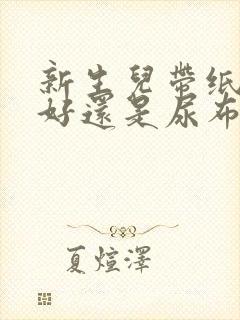 新生兒帶纸
好還是尿布
夏煊澤